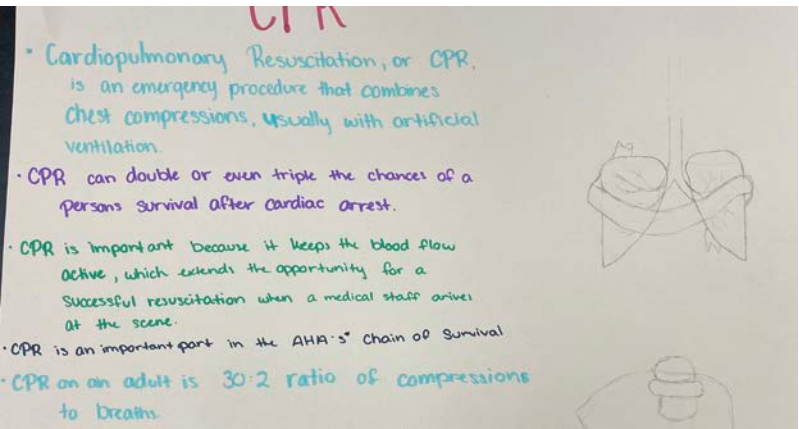 CPR
• Cardiopulmonary Resuscitation, or CPR,
is an emergency procedure that combines
chest compressions, usually with artificial
ventilation.
• CPR can double or even triple the chances of a
persons survival after cardiac arrest.
• CPR is important because it keeps the blood flow
active, which extends the opportunity for a
successful resuscitation when a medical staff arives
at the scene.
• CPR is an important part in the AHA's" Chain of Survival
• CPR on an adult is 30:2 ratio of compressions
to breaths.